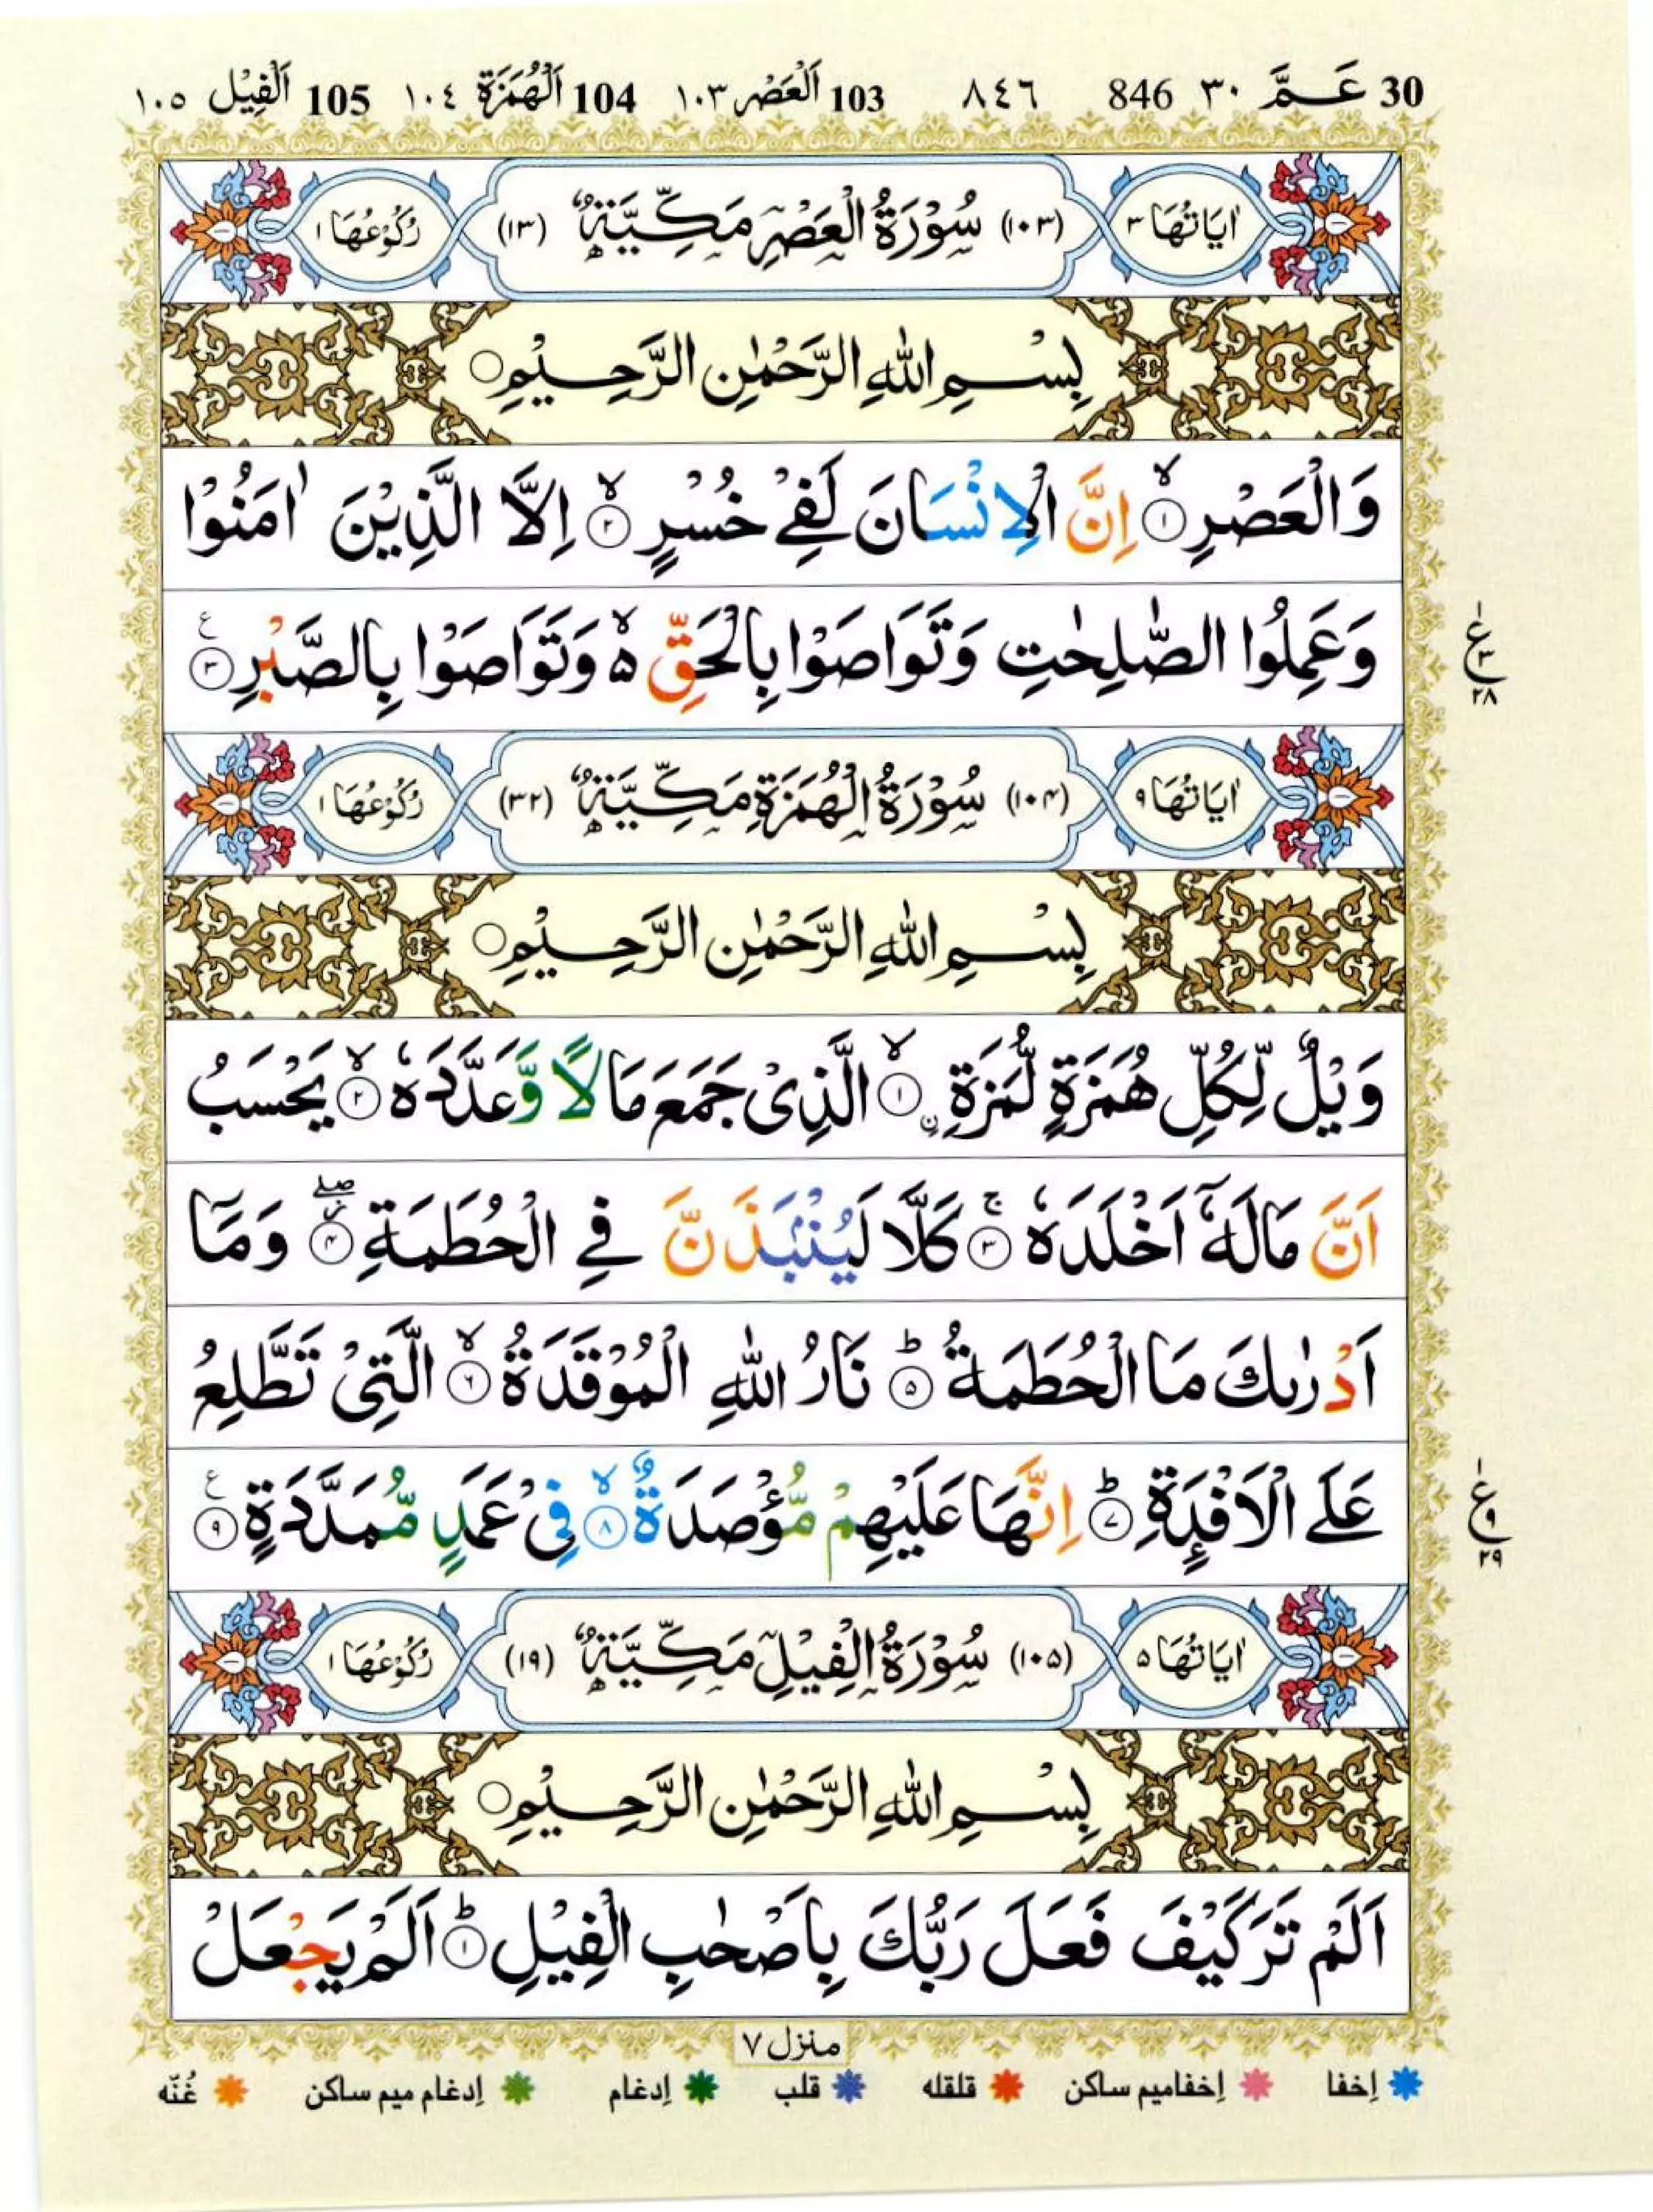 30 عَـمَّ ٣٠ 846 ٨٤٦ 103 اَلْعَصْر ١٠٣ 104 اَلْهُمَزَة ١٠٤ 105 اَلْفِيْل ١٠٥
اٰيَاتُهَا ٣ (١٠٣) سُوْرَةُ الْعَصْرِ مَكِّيَّةٌ (١٣) رُكُوْعُهَا ١
بِسْمِ اللهِ الرَّحْمٰنِ الرَّحِيْمِ
وَالْعَصْرِ ۙ‏﴿۱﴾ اِنَّ الْاِنْسَانَ لَفِىْ خُسْرٍ ۙ‏﴿۲﴾ اِلَّا الَّذِيْنَ اٰمَنُوْا
وَعَمِلُوا الصّٰلِحٰتِ وَتَوَاصَوْا بِالْحَقِّ ۙ۬ وَتَوَاصَوْا بِالصَّبْرِ ﴿۳﴾ ع
ع ٣ ٢٨
اٰيَاتُهَا ٩ (١٠٤) سُوْرَةُ الْهُمَزَةِ مَكِّيَّةٌ (٣٢) رُكُوْعُهَا ١
بِسْمِ اللهِ الرَّحْمٰنِ الرَّحِيْمِ
وَيْلٌ لِّكُلِّ هُمَزَةٍ لُّمَزَةِ ۙ‏﴿۱﴾ ن الَّذِىْ جَمَعَ مَالًا وَّعَدَّدَهٗ ۙ‏﴿۲﴾ يَحْسَبُ
اَنَّ مَالَهٗۤ اَخْلَدَهٗ ۚ‏﴿۳﴾ كَلَّا لَيُنْۢبَذَنَّ فِى الْحُطَمَةِ ۖ‏﴿۴﴾ وَمَاۤ
اَدْرٰىكَ مَا الْحُطَمَةُ ؕ‏﴿۵﴾ نَارُ اللهِ الْمُوْقَدَةُ ۙ‏﴿۶﴾ الَّتِىْ تَطَّلِعُ
عَلَى الْاَفْـِٕدَةِ ؕ‏﴿۷﴾ اِنَّهَا عَلَيْهِمْ مُّؤْصَدَةٌ ۙ‏﴿۸﴾ فِىْ عَمَدٍ مُّمَدَّدَةٍ ﴿۹﴾ ع
ع ٩ ٢٩
اٰيَاتُهَا ٥ (١٠٥) سُوْرَةُ الْفِيْلِ مَكِّيَّةٌ (١٩) رُكُوْعُهَا ١
بِسْمِ اللهِ الرَّحْمٰنِ الرَّحِيْمِ
اَلَمْ تَرَ كَيْفَ فَعَلَ رَبُّكَ بِاَصْحٰبِ الْفِيْلِ ؕ‏﴿۱﴾ اَلَمْ يَجْعَلْ
منزل ٧
اِخفا اِخفامیم ساکن قلقله قلب اِدغام اِدغام میم ساکن غُنّه